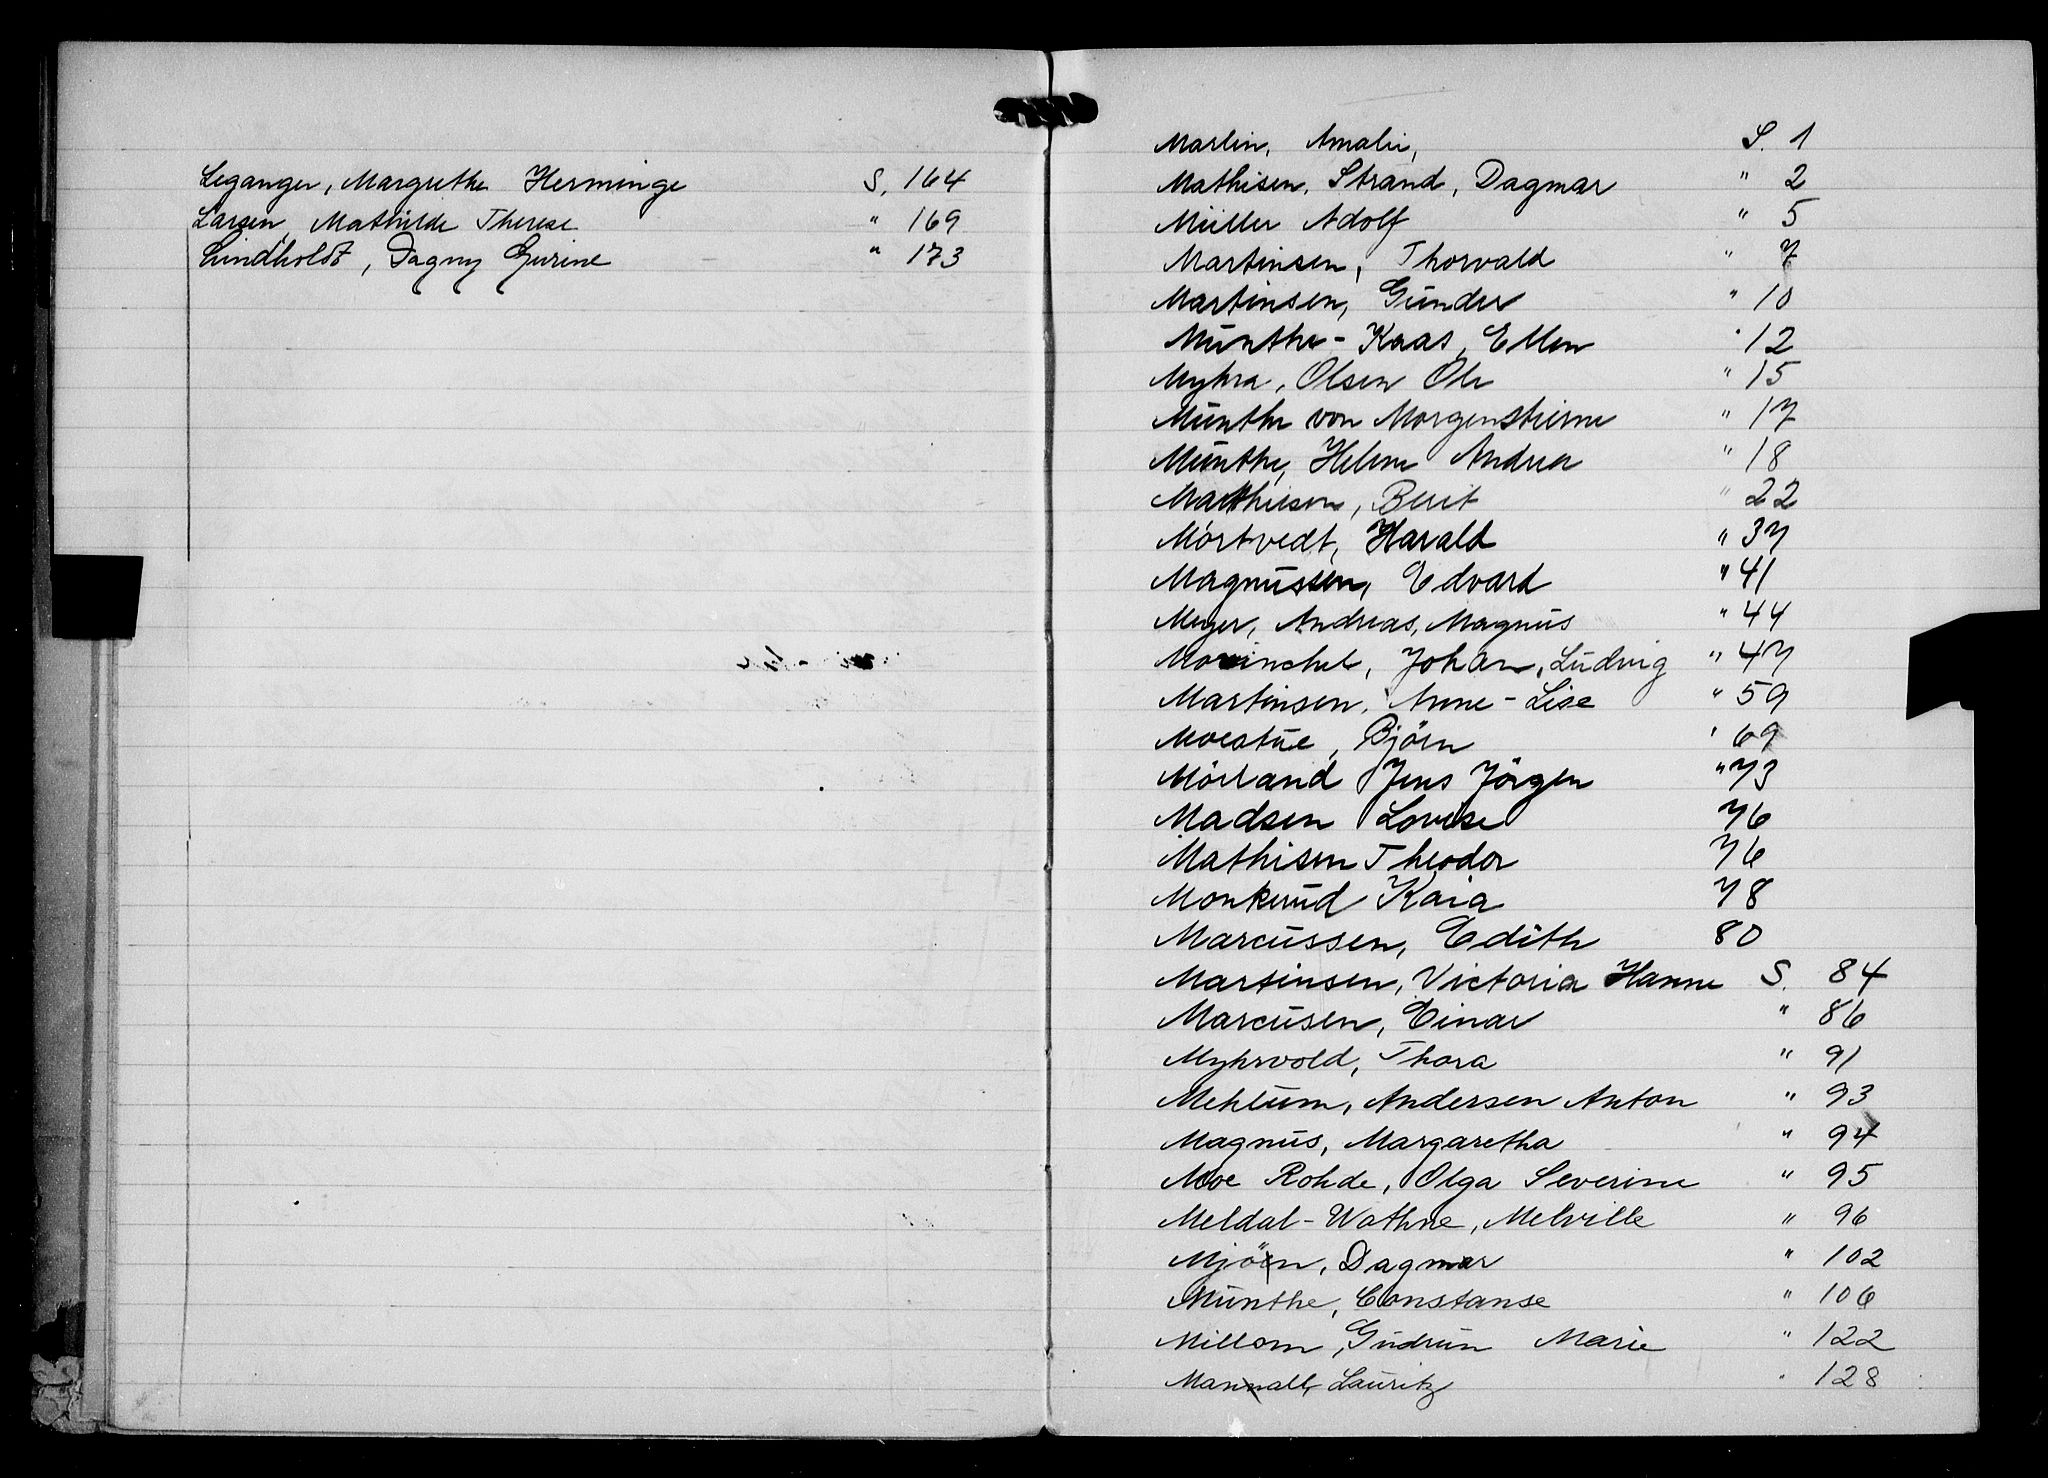 Leganger, Margrethe Herminge S. 164
Larsen, Mathilde Therese " 169
Lindholdt, Dagny Gurine " 173
Marlin, Amalie, S. 1
Mathisen, Strand, Dagmar " 2
Müller Adolf " 5
Martinsen, Thorvald " 7
Martinsen, Gunder " 10
Munthe-Kaas, Ellen " 12
Myhra, Olsen Ole " 15
Munthe von Morgenstierne " 17
Munthe, Helene Andrea " 18
Mathiesen, Berit " 22
Mörtvedt, Harald " 37
Magnussen, Edvard " 41
Meyer, Andreas, Magnus " 44
Johan, Ludvig " 47
Martinsen, Anne-Lise " 59
Moestue, Björn " 69
Mörland Jens Jörgen " 73
Madsen Lovise 76
Mathisen Theodor 76
Monkerud Kaia 78
Marcussen, Edith 80
Martinsen, Victoria Hanne S. 84
Marcusen, Einar " 86
Myhrvold, Thora " 91
Mehlum, Andersen Anton " 93
Magnus, Margaretha " 94
Moe Rohde, Olga Severine " 95
Meldal-Wathne, Melville " 96
Mjöen, Dagmar " 102
Munthe, Constanse " 106
Millom, Gudrun Marie " 122
Lauritz " 128